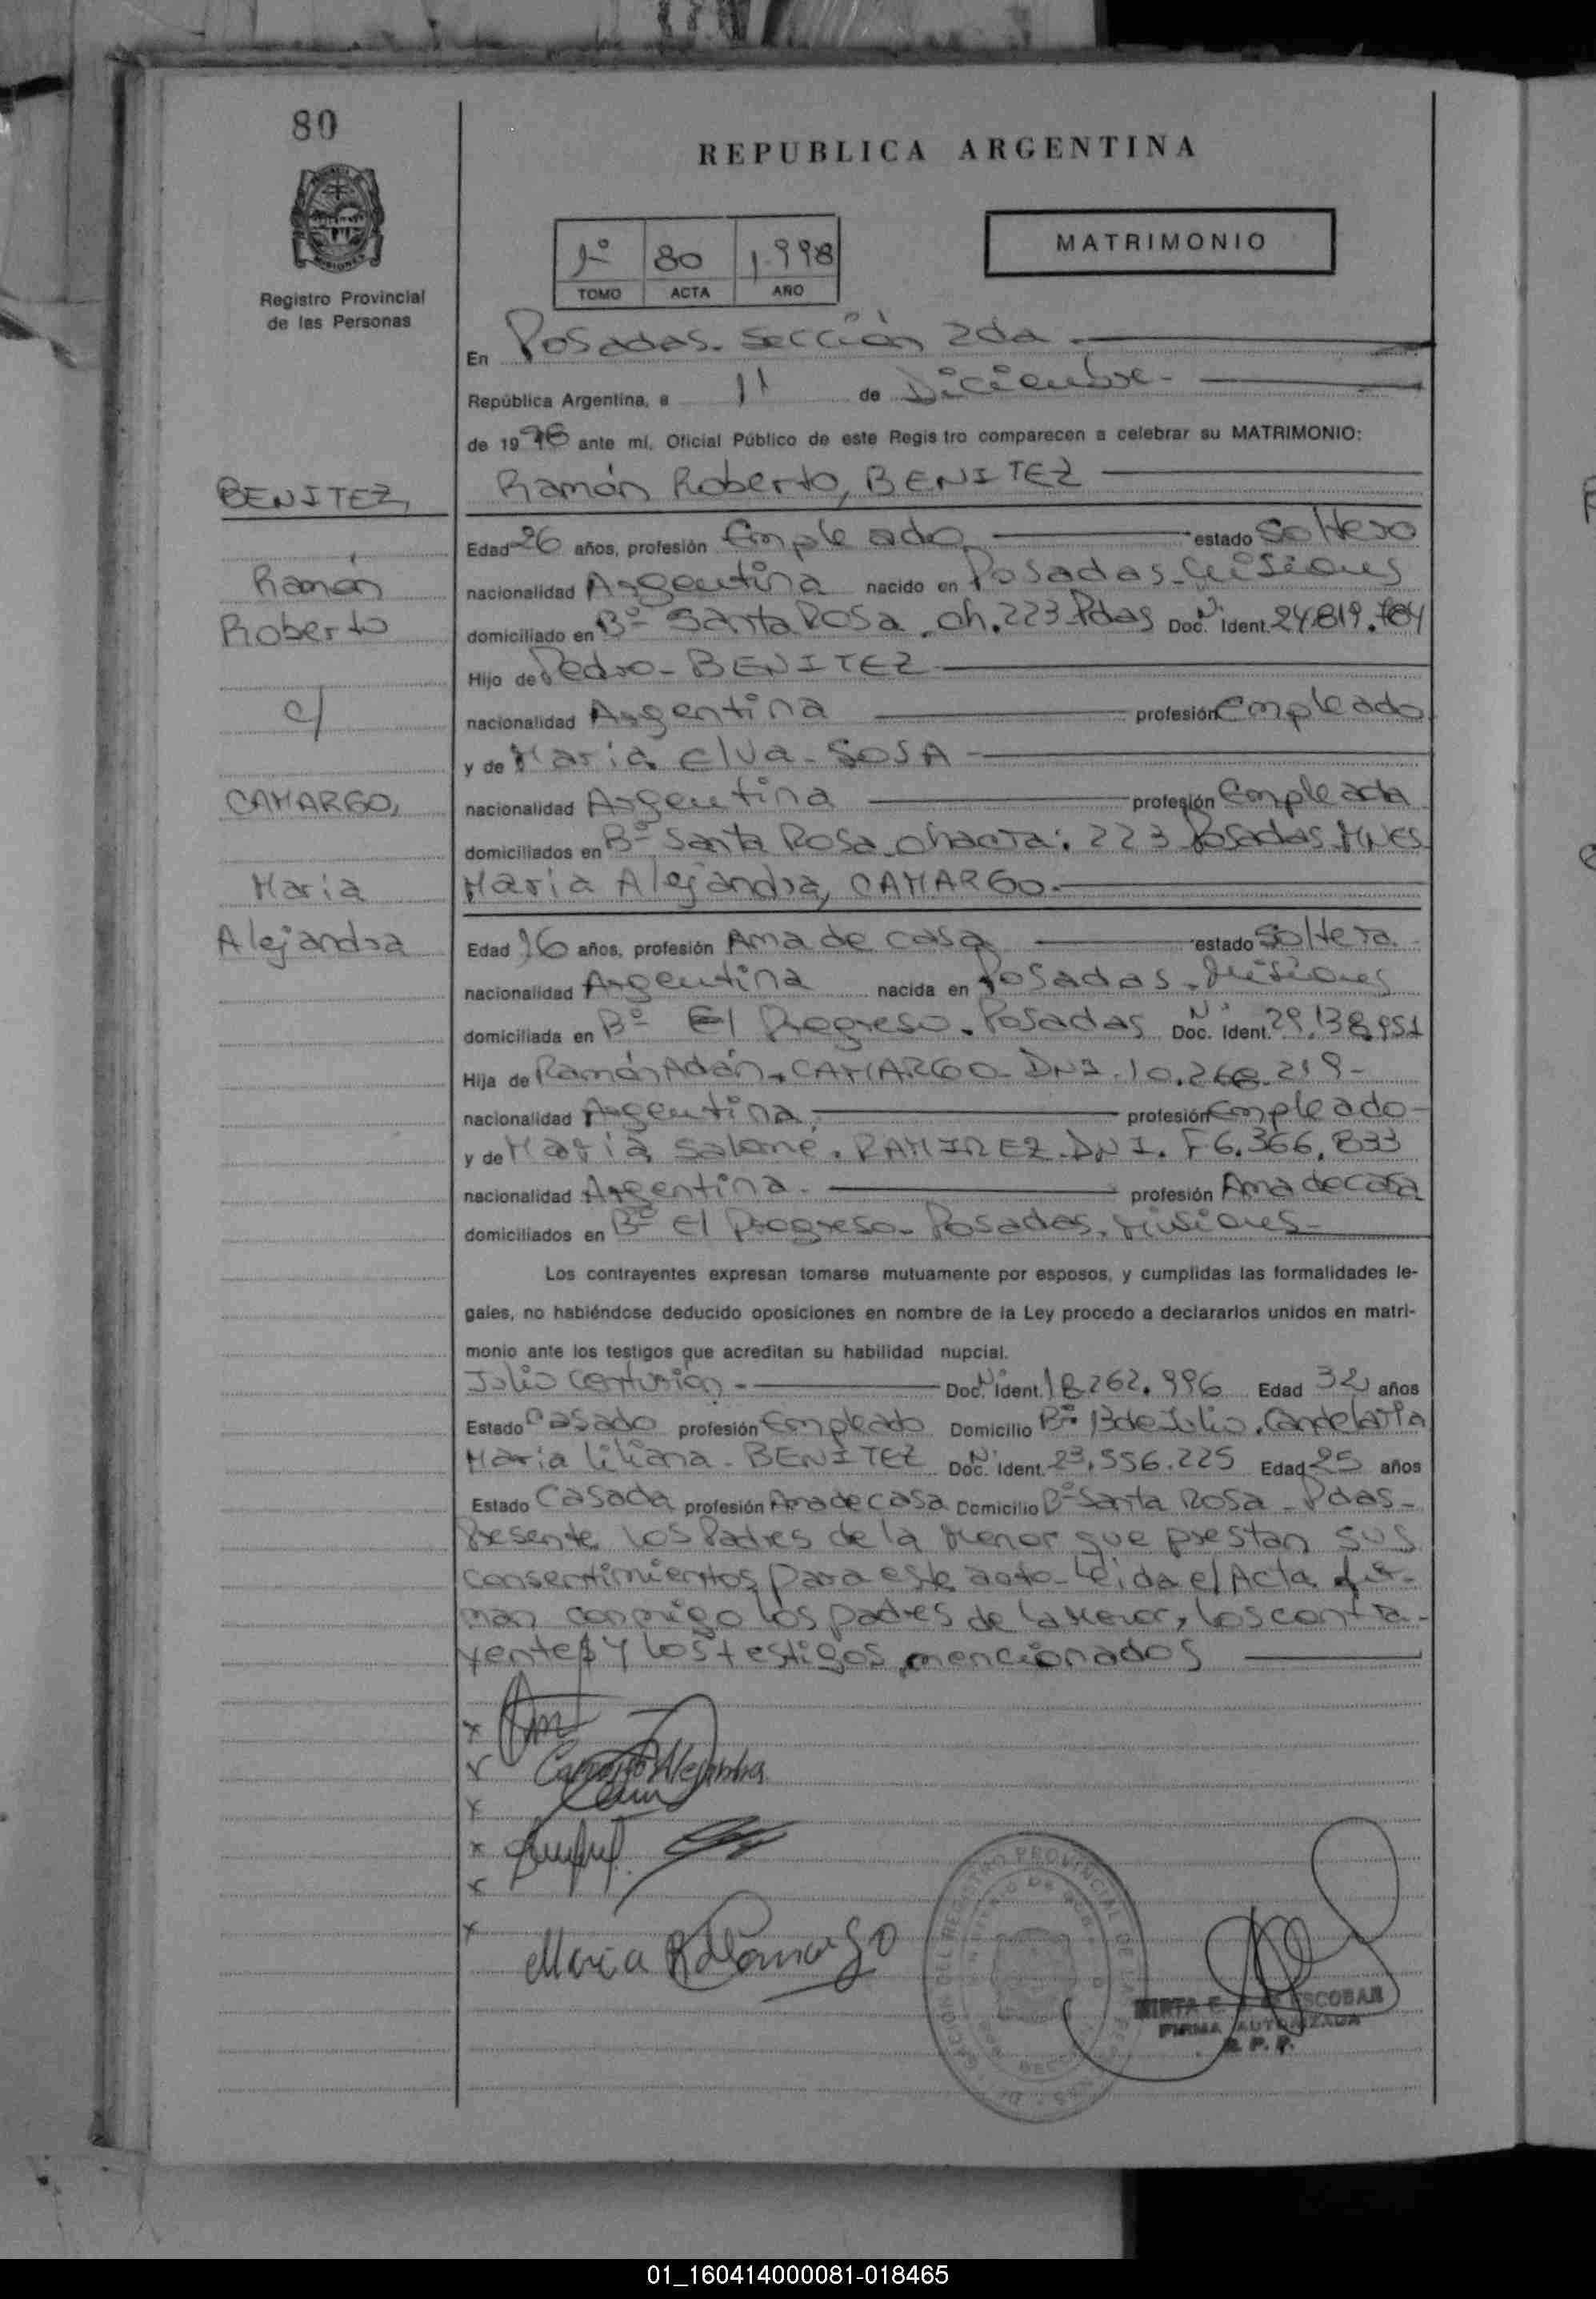 80
REPUBLICA ARGENTINA
MATRIMONIO
1º 80 1.998
TOMO ACTA AÑO
Registro Provincial
de las Personas
En Posadas. Sección 2da
República Argentina, a 11 de Diciembre
de 1998 ante mí, Oficial Público de este Registro comparecen a celebrar su MATRIMONIO:
BENITEZ,
Ramón Roberto, BENITEZ
Edad 26 años, profesión Empleado estado Soltero
Ramón
nacionalidad Argentina nacido en Posadas-Misiones
Roberto
domiciliado en Bº Santa Rosa. ch. 223 Pdas Doc. Nº Ident. 24.819.784
Hijo de Pedro - BENITEZ
c/
nacionalidad Argentina profesión Empleado
y de María Elva - SOSA
CAMARGO,
nacionalidad Argentina profesión Empleada
domiciliados en Bº Santa Rosa chacra: 223 Posadas Mnes
Maria
Maria Alejandra, CAMARGO.
Alejandra
Edad 16 años, profesión Ama de casa estado Soltera
nacionalidad Argentina nacida en Posadas. Misiones
domiciliada en Bº El Progreso. Posadas Doc. Nº Ident. 29.138.951
Hija de Ramón Adán. CAMARGO - DNI. 10.268.219 -
nacionalidad Argentina profesión Empleado -
y de María Salomé. RAMIREZ - DNI. F6.366.833
nacionalidad Argentina. profesión Ama de casa
domiciliados en Bº El Progreso - Posadas. Misiones -
Los contrayentes expresan tomarse mutuamente por esposos, y cumplidas las formalidades le-
gales, no habiéndose deducido oposiciones en nombre de la Ley procedo a declararlos unidos en matri-
monio ante los testigos que acreditan su habilidad nupcial.
Julio Centurión - Doc. Nº Ident. 18.262.996 Edad 32 años
Estado Casado profesión Empleado Domicilio Bº 13 de Julio. Candelaria
Maria Liliana - BENITEZ Doc. Nº Ident. 23.556.225 Edad 25 años
Estado Casada profesión Ama de casa Domicilio Bº Santa Rosa - Pdas -
Presente los Padres de la Menor que prestan sus
consentimientos para este acto - Leida el Acta fir-
man conmigo los padres de la Menor, los contra-
yentes y los testigos mencionados
Camargo Alejandra
Maria R Camargo
MIRTA E. ESCOBAR
FIRMA AUTORIZADA
R. P. P.
01_160414000081-018465